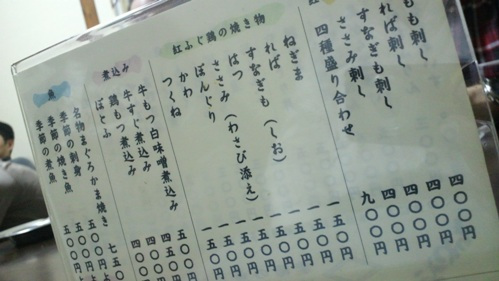 もも刺し 四〇〇円
れば刺し 四〇〇円
すなぎも刺し 四〇〇円
ささみ刺し 四〇〇円
四種盛り合わせ 九〇〇円
紅ふじ鶏の焼き物
ねぎま 一五〇円
れば 一五〇円
すなぎも（しお） 一五〇円
はつ 一五〇円
ささみ（わさび添え） 一五〇円
ぼんじり 一五〇円
かわ 一五〇円
つくね 一五〇円
煮込み
牛もつ白味噌煮込み 五〇〇円
牛すじ煮込み 四五〇
鶏もつ煮込み 四
ぱとふ
魚
名物まぐろかま焼き 七五〇
季節の刺身 五〇〇円
季節の焼き魚 五〇〇円
季節の煮魚 五〇〇円